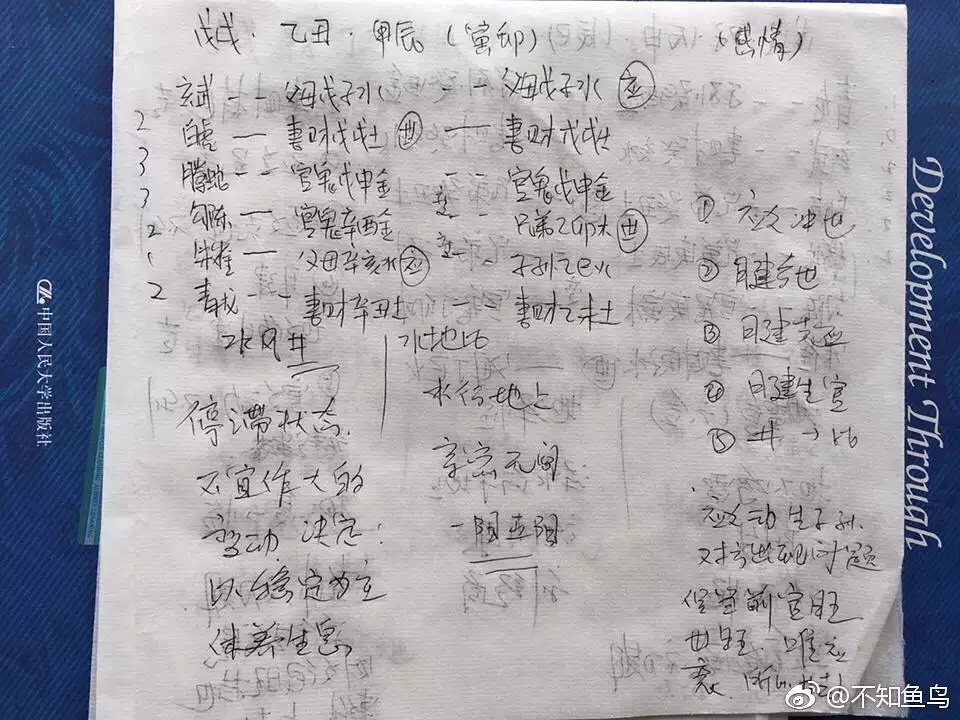 戊戌·乙丑·甲辰(寅卯) (感情)
玄武 - - 父母戊子水 - - 父母戊子水 应
2 白虎 — 妻财戊戌土 世 — 妻财戊戌土
3 腾蛇 - - 官鬼戊申金 - - 官鬼戊申金
3 勾陈 — 官鬼辛酉金 - - 兄弟乙卯木 世
2 朱雀 — 父母辛亥水 应 - - 子孙乙巳火
1
2 青龙 - - 妻财辛丑土 妻财乙未土
水风井
水地比
停滞状态
不宜作大的
变动 决定:
以稳定为主
休养生息
水行地上
亲密无间
一阳五阴
① 应
② 日建合世
③ 日建克应
④ 日建生官
⑤ 井→比
应动生子孙
对方出现问题
官旺
世旺
中国人民大学出版社
Development Through
@不知鱼鸟